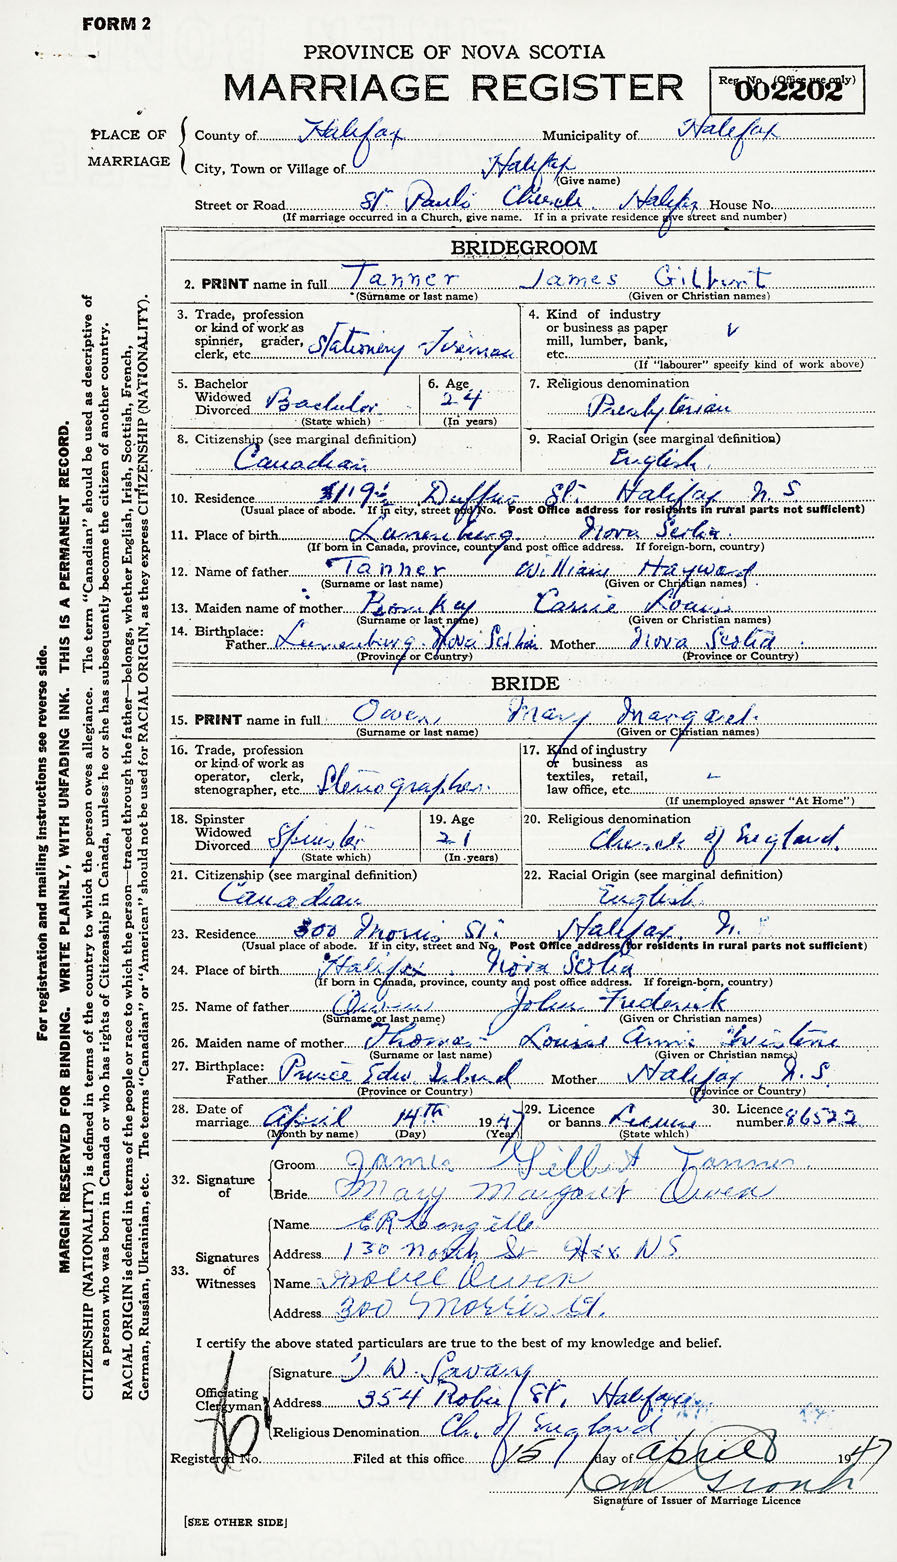 FORM 2
PROVINCE OF NOVA SCOTIA
MARRIAGE REGISTER
Reg. No. (Office use only)
002202
PLACE OF MARRIAGE
County of Halifax Municipality of Halifax
City, Town or Village of Halifax
(Give name)
Street or Road St. Paul's Church. Halifax House No.
(If marriage occurred in a Church, give name. If in a private residence give street and number)
BRIDEGROOM
2. PRINT name in full Tanner James Gilbert
(Surname or last name) (Given or Christian names)
3. Trade, profession or kind of work as spinner, grader, clerk, etc. Stationery Fireman
4. Kind of industry or business as paper mill, lumber, bank, etc.
(If "labourer" specify kind of work above)
5. Bachelor Widowed Divorced Bachelor
(State which)
6. Age 24
(In years)
7. Religious denomination
Presbyterian
8. Citizenship (see marginal definition)
Canadian
9. Racial Origin (see marginal definition)
English.
10. Residence 119½ Duffus St. Halifax N.S
(Usual place of abode. If in city, street and No. Post Office address for residents in rural parts not sufficient)
11. Place of birth Lunenburg. Nova Scotia.
(If born in Canada, province, county and post office address. If foreign-born, country)
12. Name of father Tanner William Hayward
(Surname or last name) (Given or Christian names)
13. Maiden name of mother Carrie Louis
(Surname or last name) (Given or Christian names)
14. Birthplace: Father Lunenburg. Nova Scotia Mother Nova Scotia
(Province or Country) (Province or Country)
BRIDE
15. PRINT name in full Owen Mary Margaret.
(Surname or last name) (Given or Christian names)
16. Trade, profession or kind of work as operator, clerk, stenographer, etc. Stenographer.
17. Kind of industry or business as textiles, retail, law office, etc.
(If unemployed answer "At Home")
18. Spinster Widowed Divorced Spinster
(State which)
19. Age 21
(In years)
20. Religious denomination
Church of England.
21. Citizenship (see marginal definition)
Canadian
22. Racial Origin (see marginal definition)
English.
23. Residence 300 Morris St. Halifax N.
(Usual place of abode. If in city, street and No. Post Office address for residents in rural parts not sufficient)
24. Place of birth Halifax. Nova Scotia
(If born in Canada, province, county and post office address. If foreign-born, country)
25. Name of father Owen John Frederick
(Surname or last name) (Given or Christian names)
26. Maiden name of mother Thomas Louise Annie
(Surname or last name) (Given or Christian names)
27. Birthplace: Father Prince Edw. Island Mother Halifax N.S.
(Province or Country) (Province or Country)
28. Date of marriage April 14th 1947
(Month by name) (Day) (Year)
29. Licence or banns License
(State which)
30. Licence number 86522
32. Signature of
Groom James Gilbert Tanner.
Bride Mary Margaret Owen
33. Signatures of Witnesses
Name E R Langille
Address 130 North St Hfx N S
Name Owen
Address 300 Morris St.
I certify the above stated particulars are true to the best of my knowledge and belief.
Officiating Clergyman
Signature T. W. Savary
Address 354 Robie St. Halifax
Religious Denomination Ch. of England
Registered No. Filed at this office 15 day of April 1947
Signature of Issuer of Marriage Licence
[SEE OTHER SIDE]
For registration and mailing instructions see reverse side.
MARGIN RESERVED FOR BINDING. WRITE PLAINLY, WITH UNFADING INK. THIS IS A PERMANENT RECORD.
CITIZENSHIP (NATIONALITY) is defined in terms of the country to which the person owes allegiance. The term "Canadian" should be used as descriptive of
a person who was born in Canada or who has rights of Citizenship in Canada, unless he or she has subsequently become the citizen of another country.
RACIAL ORIGIN is defined in terms of the people or race to which the person—traced through the father—belongs, whether English, Irish, Scottish, French,
German, Russian, Ukrainian, etc. The terms "Canadian" or "American" should not be used for RACIAL ORIGIN, as they express CITIZENSHIP (NATIONALITY).